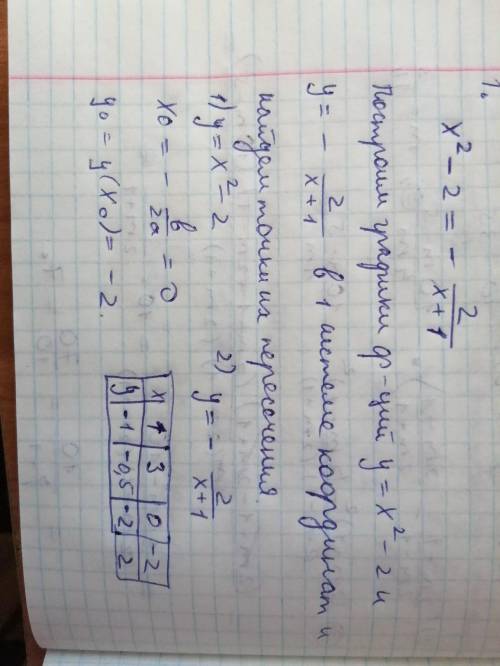 1.
x² - 2 = - 2/(x+1)
Построим графики ф-ций y = x² - 2 и
y = - 2/(x+1) в 1 системе координат и
найдем точки их пересечения.
1) y = x² - 2
x₀ = - в/2a = 0
y₀ = y(x₀) = -2.
2) y = - 2/(x+1)
x 1 3 0 -2
y -1 -0,5 -2 2